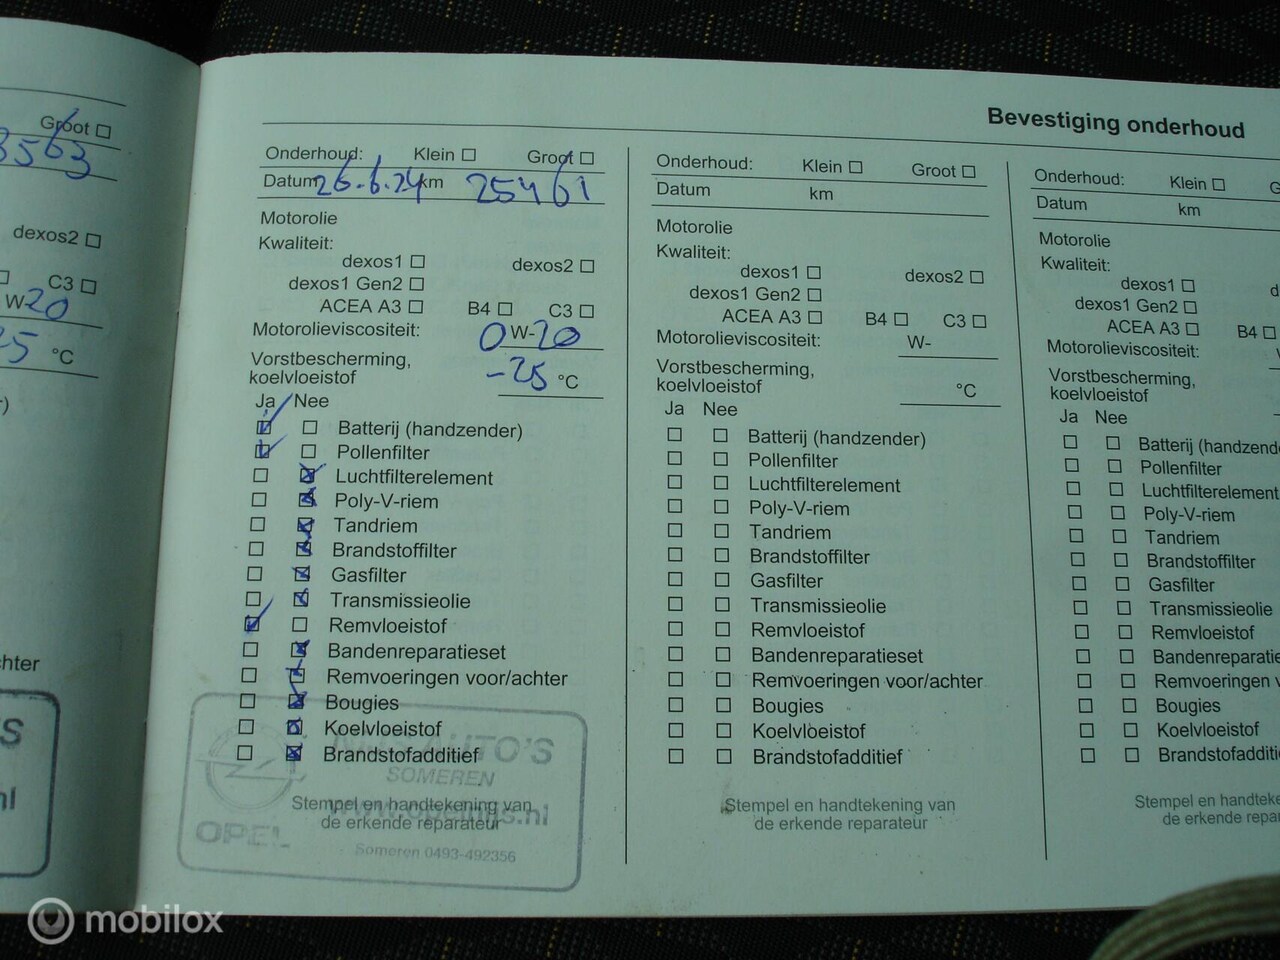 Groot
dexos2
C3
W-20
°C
Bevestiging onderhoud
Onderhoud: Klein Groot
Datum 26.6.24 km 25461
Motorolie
Kwaliteit:
dexos1 dexos2
dexos1 Gen2
ACEA A3 B4 C3
Motorolieviscositeit: 0 W-20
Vorstbescherming,
koelvloeistof -25 °C
Ja Nee
Batterij (handzender)
Pollenfilter
Luchtfilterelement
Poly-V-riem
Tandriem
Brandstoffilter
Gasfilter
Transmissieolie
Remvloeistof
Bandenreparatieset
Remvoeringen voor/achter
Bougies
Koelvloeistof
Brandstofadditief
Stempel en handtekening van
de erkende reparateur
AUTO'S
SOMEREN
OPEL
Someren 0493-492356
Onderhoud: Klein Groot
Datum km
Motorolie
Kwaliteit:
dexos1 dexos2
dexos1 Gen2
ACEA A3 B4 C3
Motorolieviscositeit: W-
Vorstbescherming,
koelvloeistof °C
Ja Nee
Batterij (handzender)
Pollenfilter
Luchtfilterelement
Poly-V-riem
Tandriem
Brandstoffilter
Gasfilter
Transmissieolie
Remvloeistof
Bandenreparatieset
Remvoeringen voor/achter
Bougies
Koelvloeistof
Brandstofadditief
Stempel en handtekening van
de erkende reparateur
Onderhoud: Klein
Datum km
Motorolie
Kwaliteit:
dexos1
dexos1 Gen2
ACEA A3 B4
Motorolieviscositeit:
Vorstbescherming,
koelvloeistof
Ja Nee
Batterij (handzende
Pollenfilter
Luchtfilterelement
Poly-V-riem
Tandriem
Brandstoffilter
Gasfilter
Transmissieolie
Remvloeistof
Bandenreparatie
Remvoeringen
Bougies
Koelvloeistof
Brandstofadditi
Stempel en handteke
de erkende repara
mobilox